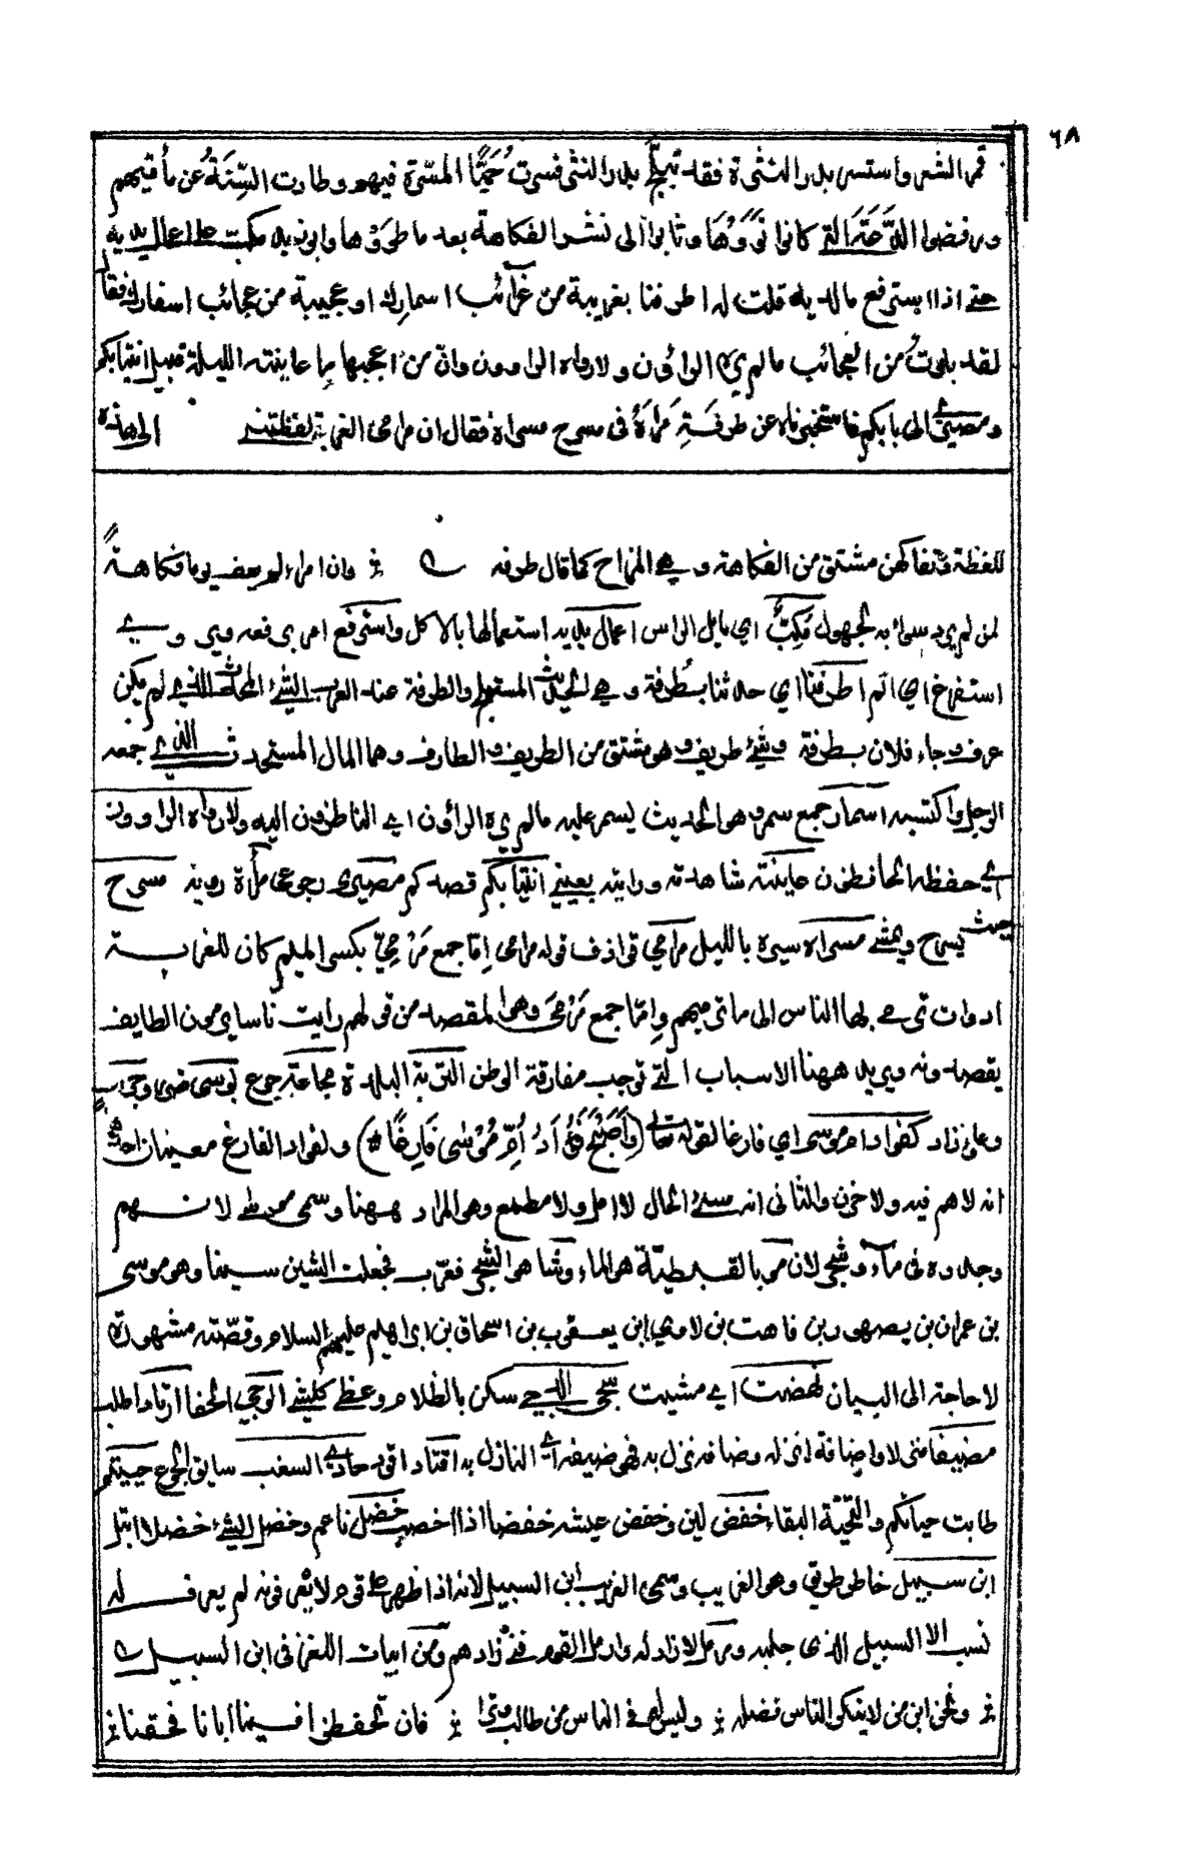 ٦٨
قمر الشعر واستسر بدر النثرة فقد تبلّج بدر النثر فسرت حُمَيَّا المسّرة فيهم وطارت السِّنَةُ عن مأقيهم
ورفضوا الدَّعَةَ التي كانوا نَوَوْهَا وثابوا الى نشر الفكاهة بعد ما طَوَوْها وابو زيد مكبّ على اعمال يديه
حتى اذا استرفع ما لديه قلت له اطرفنا بغريبة من غرائب اسمارك او عجيبة من عجائب اسفارك فقال
لقد بلوتُ من العجائب ما لم يره الراؤن ولا رواه الراوون وانّ من اعجبها ما عاينته الليلة قبيل انتيابكم
ومصيرى الى بابكم فاستخبرناه عن طرفَةِ مَرْاٰهُ فى مسرح مسراه فقال ان مرامى الغربة لفظتنى الى هذه
للفظة وتفاكهن مشتق من الفكاهة وهى المزاح كما قال طرفه وان امراء لم يعف يوما فكاهةً
لمن لم يرد سواء به لجهول مُكِبٌّ اي مايل الراس اعمال يديه استعمالها بالاكل واسترفع امر برفعه وروى
استفرغ اي اتم اطرفنا اي حدثنا بطُرفة وهى الحديث المستملح والطرفة عند العرب الشئ المحدث الذى لم يكن
عرف وجاء فلان بطرفة وشئ طريف وهو مشتق من الطريف والطارف وهما المال المستحدث الذى جمعه
الرجل واكتسبه اسمار جمع سمر وهو الحديث يسمر عليه ما لم يره الراؤن اى الناظرون اليه ولا رواه الراوون
اى حفظه الحافظون عاينته شاهدته ورايته بعينى انتيابكم قصدكم مصيرى رجوعى مرأة روية مسرح
حيث يسرح ويمشى مسراه سيره بالليل مرامى قواذف قوله مرامى إمّا جمع مَرْمِيّ بكسر الميم كان للغربة
ادوات ترمى بها الناس الى ماتى مبهم وإمّا جمع مَرْمَى وهو المقصد من قولهم رايت ناسا يرمون الطايف
يقصدونه ويريد ههنا الاسباب التى توجب مفارقة الوطن التربة البلدة مجاعة جوع بوسى ضر وجراب
وعاء زاد كفواد ام موسى اي فارغا لقوله تعالى (وَاَصْبَحَ فُؤَادُ اُمِّ مُوْسٰى فَارِغًا) ولفواد الفارغ معنيان احدهما
انه لاهم فيه ولا حزن والثانى انه سئ الحال لا امل ولا مطمع وهو المراد ههنا وسمى موسى لانهم
وجدوه فى مآء وشجر لان مو بالقبطيّة هو الماء وشا هو الشجر فعرّب فجعلت الشين سينا وهو موسى
بن عمران بن يصهر بن قاهت بن لاوي ابن يعقوب بن اسحاق بن ابراهيم عليهم السلام وقصّته مشهورة
لا حاجة الى البيان نهضت اى مشيت سجى الدجى سكن بالظلام وغطى كل شئ الوجى الحفا ارتاد اطلب
مضيفا منزلا واضافة انزله وضافه نزل به فهو ضيفه اى النازل به اقتاد اقود حادى السغب سايق الجوع حييتم
طابت حياتكم والتَّحِيَّة البقاء خفض لين وخفض عيشه خفضا اذا اخصب خضل ناعم وخضل الشئ خضلا ابتل
ابن سبيل خاطر طريق وهو الغريب وسمى الغريب ابن السبيل لانه اذا ظهر على قوم لا يعرفونه لم يعرف له
نسب الا السبيل الذى جلبه ومرمل لا زاد له وارمل القوم فنى زادهم ومن ابيات اللغز فى ابن السبيل
ونحن ابن من لا ينكر الناس فضله وليس له فى الناس من طالب وترا فان تحفظن افينا ابانا فحقنا